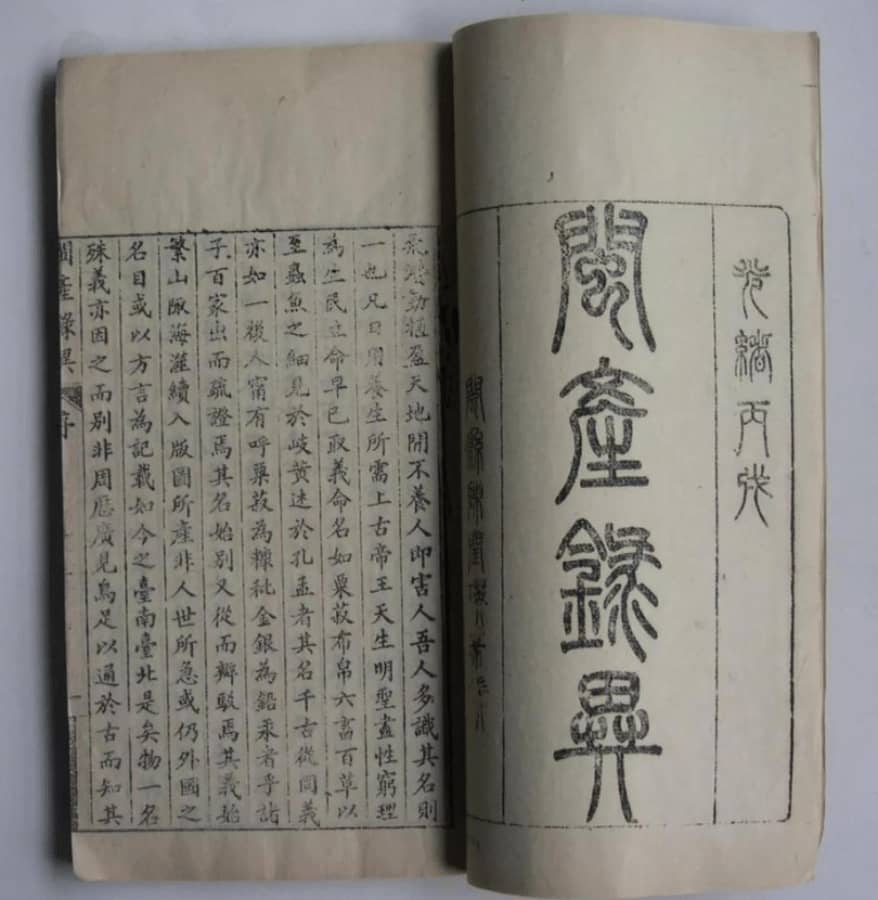 光緒丙戌
閩產錄異
飛潛動植盈天地間不養人即害人吾人多識其名則
一也凡日用養生所需上古帝王天生明聖盡性窮理
為生民立命早已取義命名如粟菽布帛六畜百草以
至蟲魚之細見於岐黃述於孔孟者其名千古從同義
亦如一後人甯有呼粟菽為糠秕金銀為鉛汞者乎
子百家出而疏證焉其名始別又從而辯駁焉其義始
繁山陬海澨續入版圖所產非人世所急或仍外國之
名目或以方言為記載如今之臺南臺北是矣物一名
殊義亦因之而別非周歷廣見烏足以通於古而知其
閩產錄異 序 一